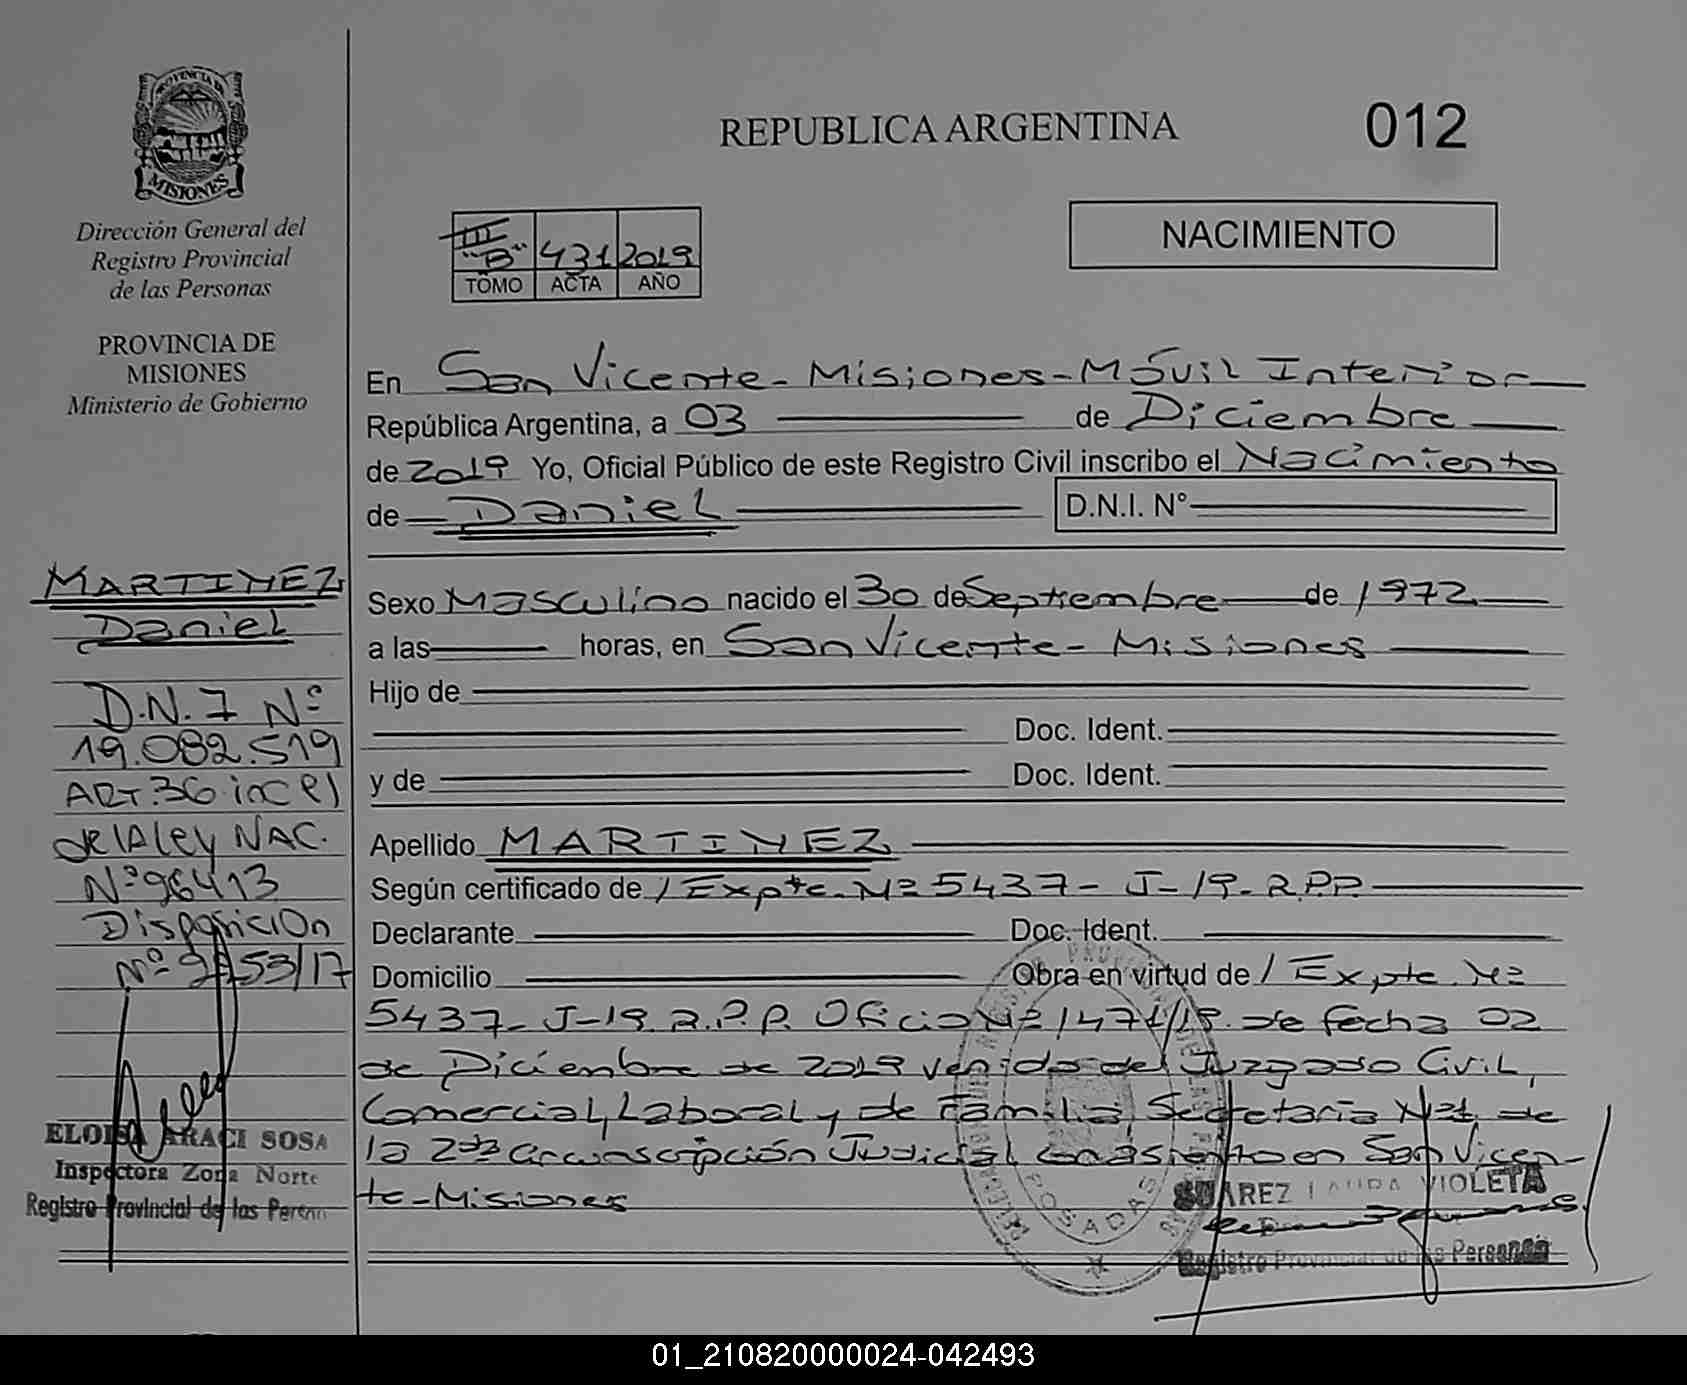 PROVINCIA DE
MISIONES
Dirección General del
Registro Provincial
de las Personas
PROVINCIA DE
MISIONES
Ministerio de Gobierno
REPUBLICA ARGENTINA
012
III
"B" 431 2019
TOMO ACTA AÑO
NACIMIENTO
En San Vicente - Misiones - Móvil Interior
República Argentina, a 03 de Diciembre
de 2019 Yo, Oficial Público de este Registro Civil inscribo el Nacimiento
de Daniel D.N.I. N°
Sexo Masculino nacido el 30 de Septiembre de 1972
a las horas, en San Vicente - Misiones
Hijo de
Doc. Ident.
y de Doc. Ident.
Apellido MARTINEZ
Según certificado de / Expte. Nº 5437 - J - 19 - R.P.P.
Declarante Doc. Ident.
Domicilio Obra en virtud de / Expte. Nº
5437 - J - 19. R.P.P. Oficio Nº 1471/19. de fecha 02
de Diciembre de 2019 venido del Juzgado Civil,
Comercial, Laboral y de Familia, Secretaria Nº1, de
la 2da Circunscripción Judicial con asiento en San Vicen-
te - Misiones
MARTINEZ
Daniel
D.N.I Nº
19.082.519
ART. 36 inc e)
de la ley NAC.
Nº 26413
Disposicion
ELOISA ARACI SOSA
Inspectora Zona Norte
Registro Provincial de las Person
POSADAS
SUAREZ LAURA VIOLETA
Registro Provincial de las Personas
01_210820000024-042493